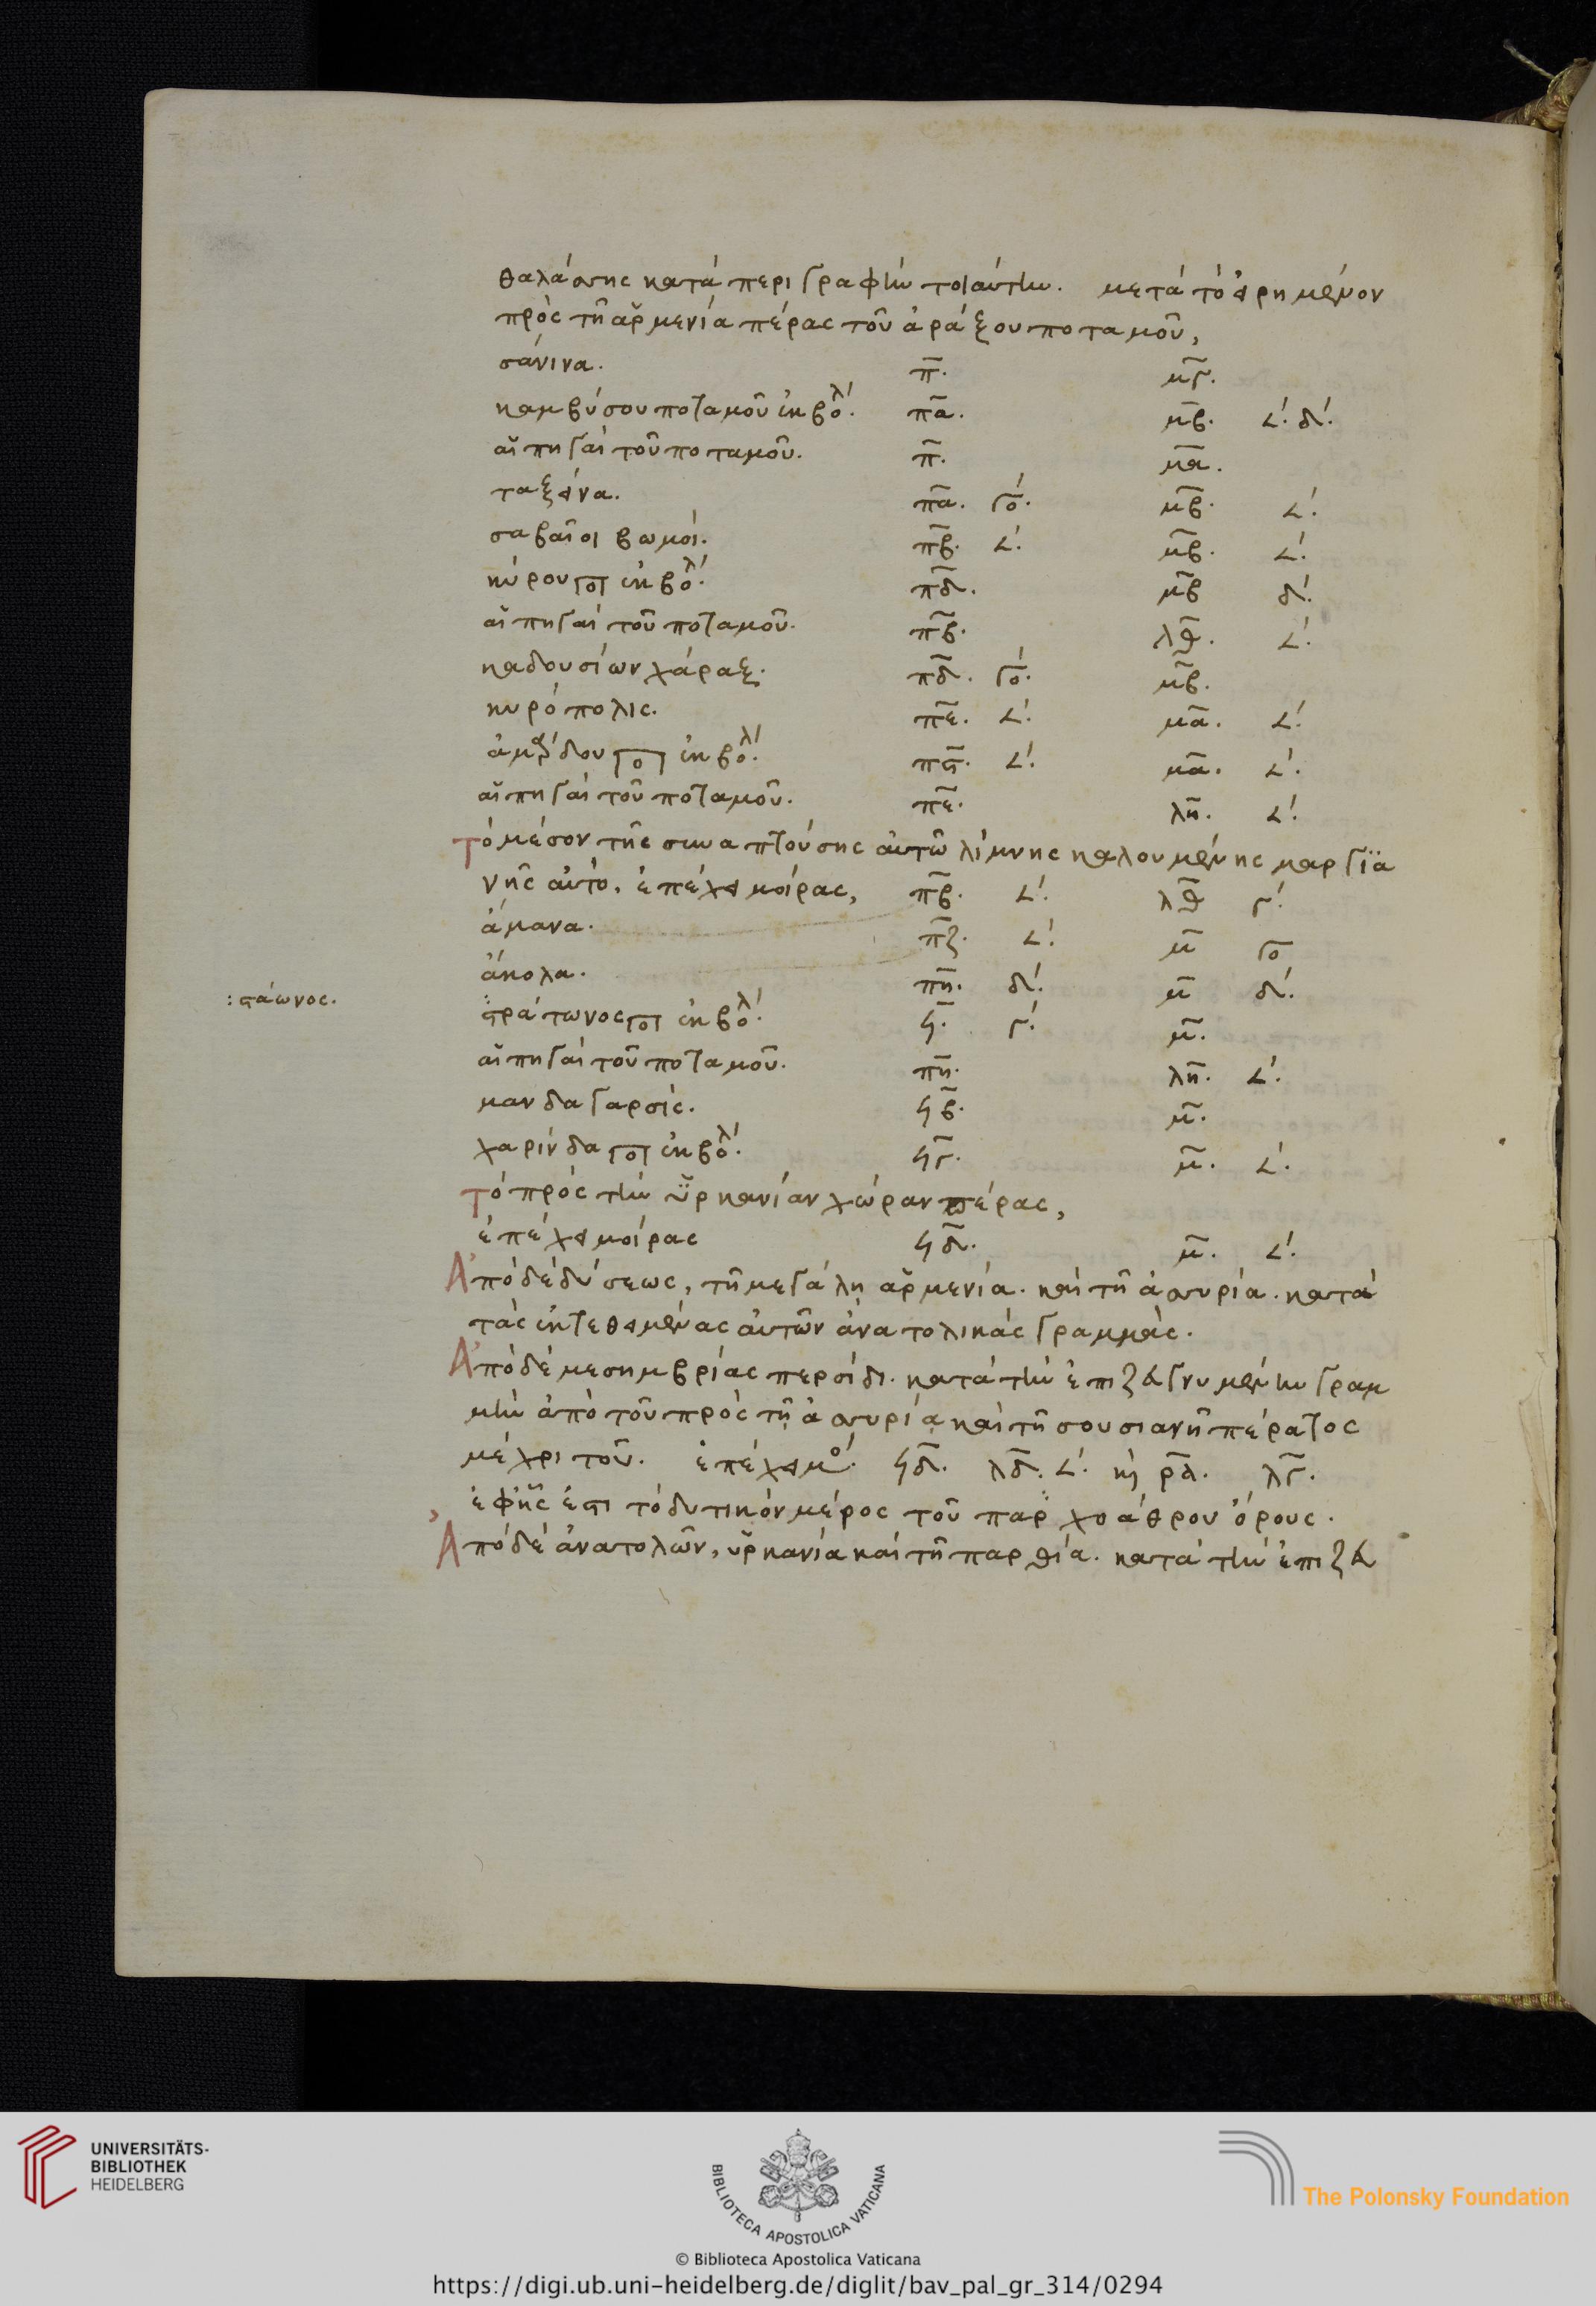 θαλάσσης κατά περιγραφὴν τοιαύτην. μετά τὸ εἰρημένον
πρὸς τῆ ἀρμενία πέρας τοῦ ἀράξου ποταμοῦ,
σάνινα. π̅. μ̅γ̅.
καμβύσου ποταμοῦ ἐκβολ́. π̅α̅. μ̅β̅. 𐅵. δ́.
αἱ πηγαὶ τοῦ ποταμοῦ. π̅. μ̅α̅.
ταξεινα. π̅α̅. γό. μ̅β̅. 𐅵.
σαβαῖοι βωμοί. π̅β̅. 𐅵. μ̅β̅. 𐅵.
κύρου ποτ ἐκβολ́. π̅δ̅. μ̅β̅ δ́.
αἱ πηγαὶ τοῦ ποταμοῦ. π̅β̅. λ̅θ̅. 𐅵.
καδουσίων χάραξ. π̅δ̅. γό. μ̅β̅.
κυρόπολις. π̅ε̅. 𐅵. μ̅α̅. 𐅵.
ἀμάρδου ποτ ἐκβολ́. π̅ϛ̅. 𐅵. μ̅α̅. 𐅵.
αἱ πηγαὶ τοῦ ποταμοῦ. π̅ε̅. λ̅η̅. 𐅵.
τὸ μέσον τῆς συναπτούσης αὐτῶ λίμνης καλουμένης μαργϊα
νῆς αὐτό. ἐπέχει μοίρας, π̅β̅. 𐅵. λ̅θ̅ γ́.
ἄμανα. π̅ζ̅. 𐅵. μ̅ γο
ἄκολα. π̅η̅. δ́. μ̅ δ́.
:στάωνος.
στράτωνος ποτ ἐκβολ́. ϟ̅. γ́. μ̅.
αἱ πηγαὶ τοῦ ποταμοῦ. π̅η̅. λ̅η̅. 𐅵.
μανδαγαρσίς. ϟ̅β̅. μ̅.
χαρίνδα ποτ ἐκβολ́. ϟ̅γ̅. μ̅. 𐅵.
τὸ πρὸς τὴν ὑρκανίαν χώραν πέρας,
ἐπέχει μοίρας ϟ̅δ̅. μ̅. 𐅵.
Ἀπὸ δὲ δύσεως, τῆ μεγάλη ἀρμενία. καὶ τῆ ἀσσυρία. κατά
τὰς ἐκτεθειμένας αὐτῶν ἀνατολικάς γραμμάς.
Ἀπὸ δὲ μεσημβρίας περσίδι. κατά τὴν ἐπιζευγνυμένην γραμ
μὴν ἀπὸ τοῦ πρὸς τῆ ἀσσυρία καὶ τῆ σουσιανῆ πέρατος
μέχρι τοῦ. ἐπέχει μό. ϟ̅δ̅. λ̅δ̅. 𐅵. καὶ ρ̅α̅. λ̅γ̅.
ἐφ' ἧς ἐστι τὸ δυτικόν μέρος τοῦ παρχοάθρου ὄρους.
Ἀπὸ δὲ ἀνατολῶν, ὑρκανία καὶ τῆ παρθία. κατά τὴν ἐπιζευ
UNIVERSITÄTS-
BIBLIOTHEK
HEIDELBERG
BIBLIOTECA APOSTOLICA VATICANA
The Polonsky Foundation
© Biblioteca Apostolica Vaticana
https://digi.ub.uni-heidelberg.de/diglit/bav_pal_gr_314/0294